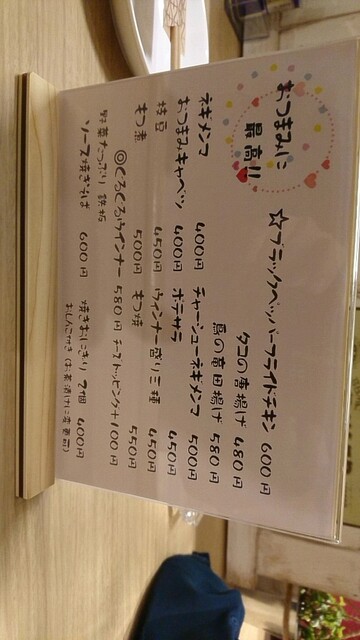 おつまみに
最高!!
☆ブラックペッパーフライドチキン 600円
タコの唐揚げ 480円
鳥の竜田揚げ 580円
ネギメンマ 400円 チャーシューネギメンマ 500円
おつまみキャベツ 400円 ポテサラ 450円
枝豆 450円 ウインナー盛り三種 450円
もつ煮 500円 もつ焼 550円
◎ぐるぐるウインナー 580円 チーズトッピング+100円
野菜たっぷり 鉄板
ソース焼きそば 600円 焼きおにぎり 2個 400円
おしんこ付き (お茶漬けに変更可)